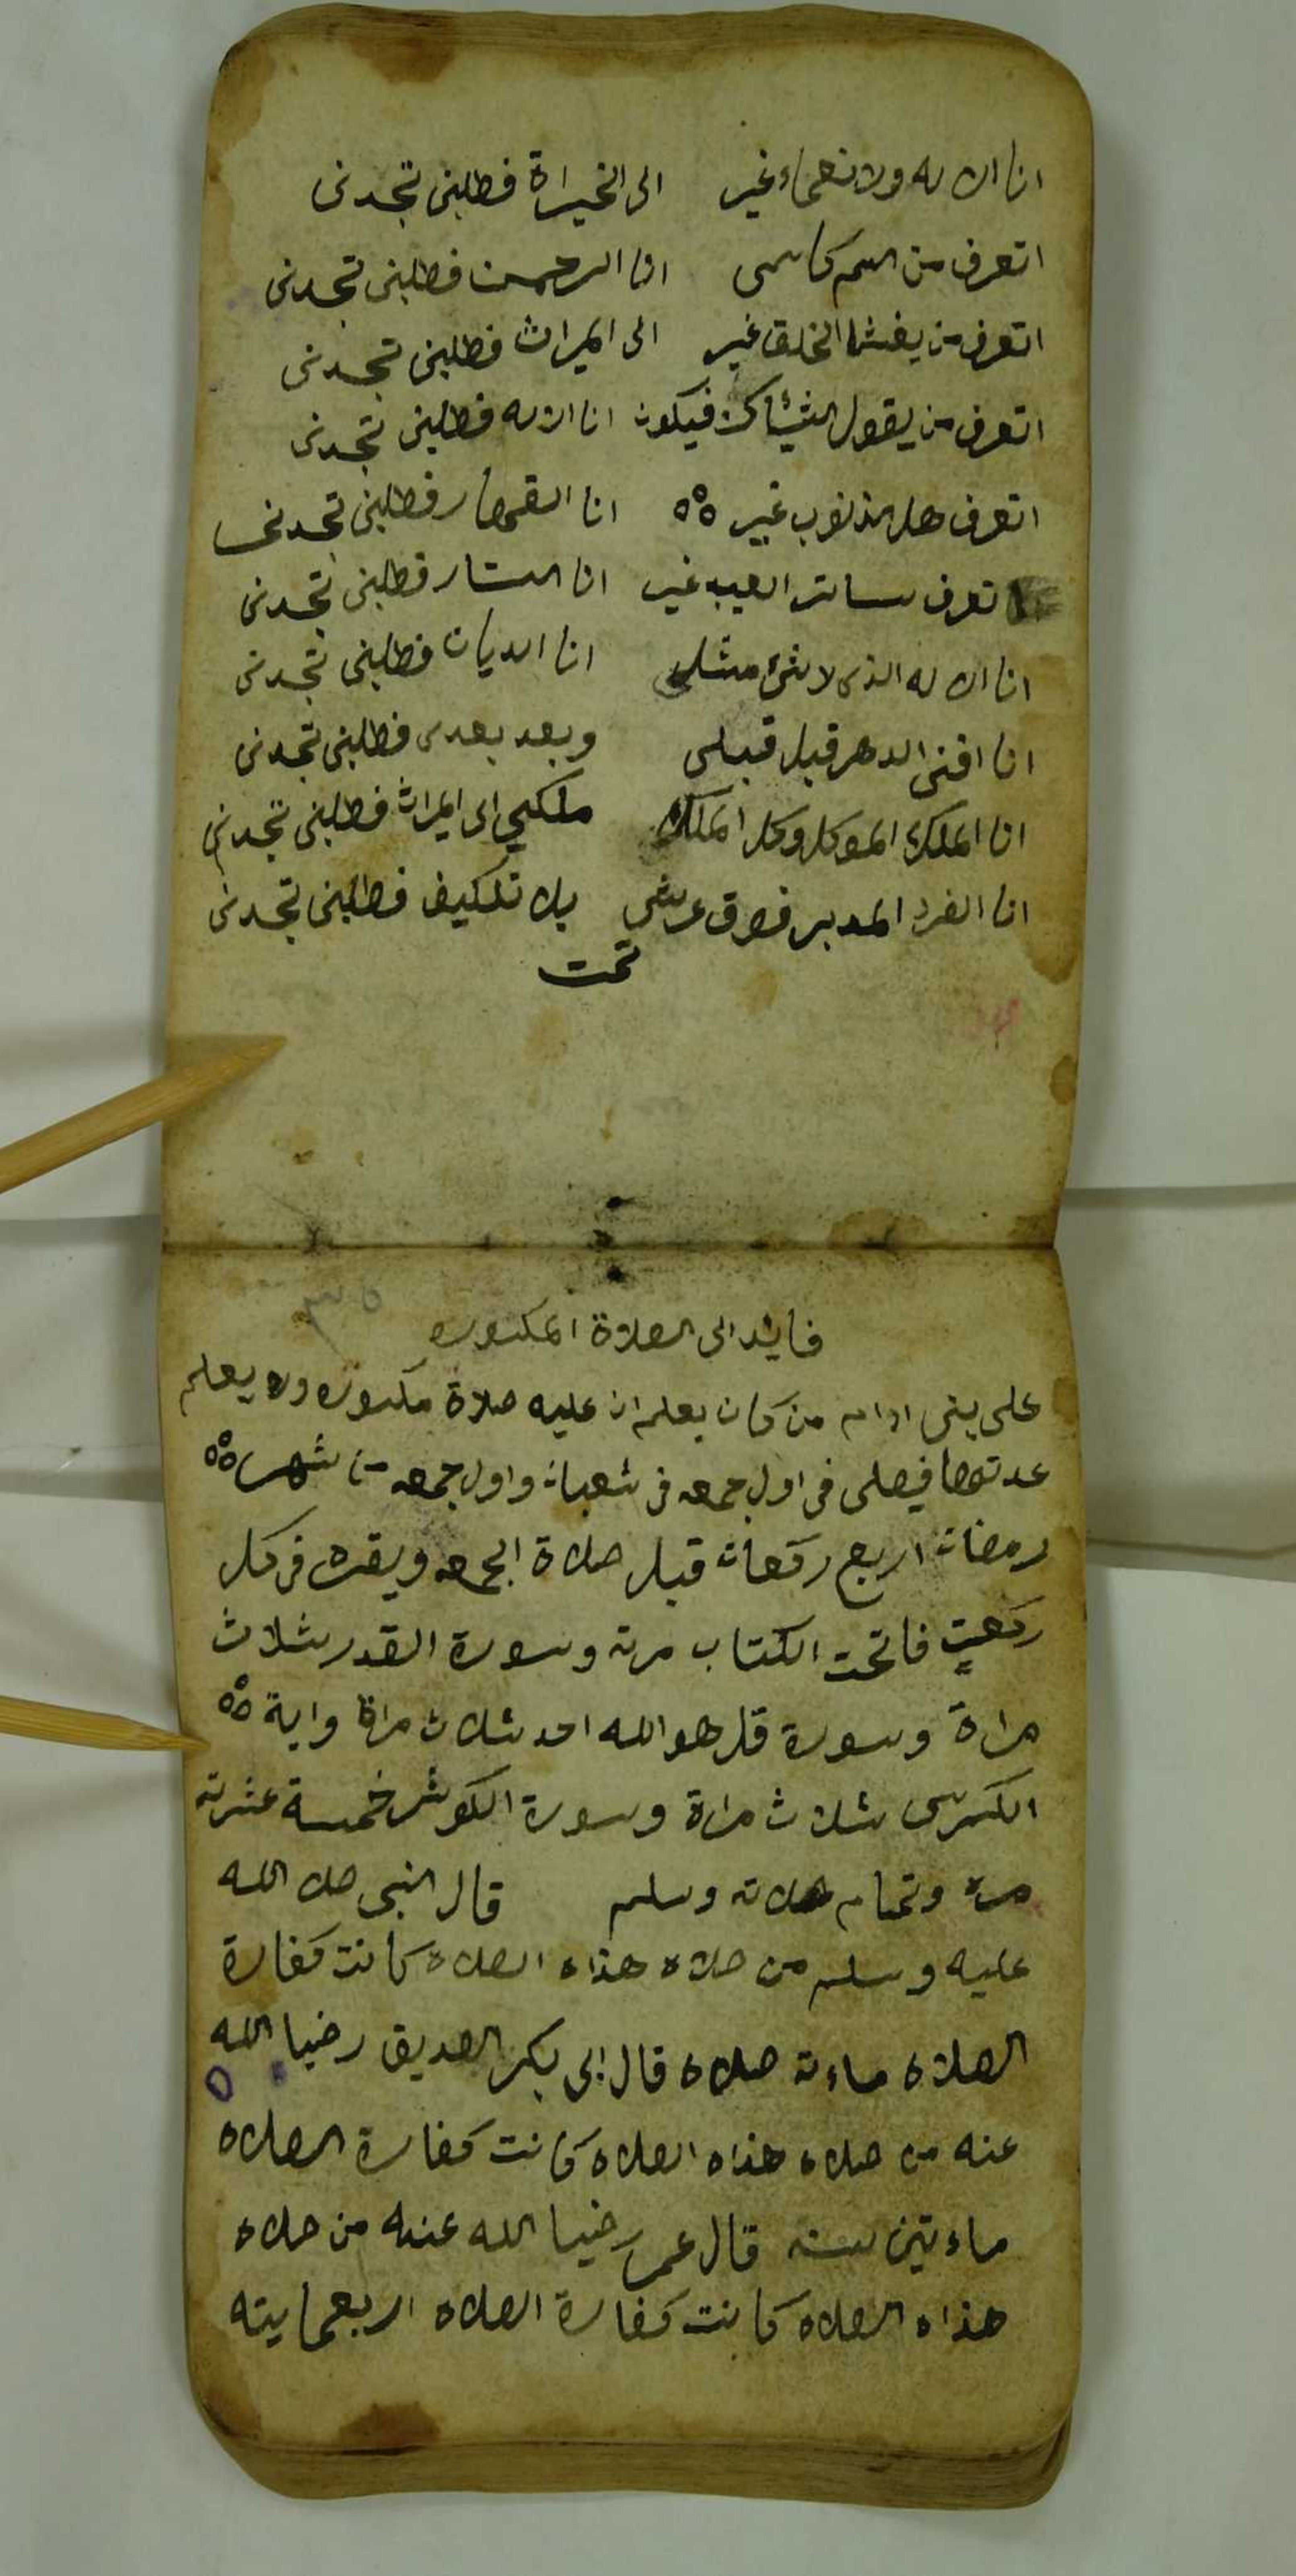 انا الاله ولا نعماء غير الى الخيراة فطلبنى تجدنى
اتعرف من اسم كاسمى انا الرحمن فطلبنى تجدنى
اتعرف من يغشا الخلق غير الى الميراث فطلبنى تجدنى
اتعرف من يقول الشيئا كن فيكون انا الاله فطلبنى تجدنى
اتعرف هل لذنوب غير انا القهار فطلبنى تجدنى
تعرف ساتر العيب غير انا الستار فطلبنى تجدنى
انا الاله الذى لا شئ مثلى انا الديان فطلبنى تجدنى
انا افنى الدهر قبل قبلى وبعد بعدى فطلبنى تجدنى
انا الملك الموكل وكل الملك ملكي الى الميراث فطلبنى تجدنى
انا الفرد المدبر فوق عرشى بلا تكليف فطلبنى تجدنى
تمت
٣٥
فايده الى الصلاة المكتوبه
على بنى ادام من كان يعلم ان عليه صلاة مكتوبه ولا يعلم
عدتها فيصلى فى اول جمعه فى شعبان واول جمعه من شهر
رمضان اربع ركعات قبل صلاة الجمعه ويقره فى كل
ركعتٍ فاتحت الكتاب مرته وسورة القدر ثلاث
مراة وسورة قل هو الله احد ثلاث مراة واية
الكرسى ثلاث مراة وسورة الكوثر خمسة عشرته
مره وتمام صلاته وسلم قال النبى صلا الله
عليه وسلم من صلاه هذاه الصلاه كانت كفارة
الصلاه ماءته صلاه قال ابى بكر الصديق رضيا الله
عنه من صلاه هذاه الصلاه كانت كفارة الصلاه
ماءتين سنه قال عمر رضيا الله عنه من صلاه
هذاه الصلاه كانت كفارة الصلاه اربعمايته